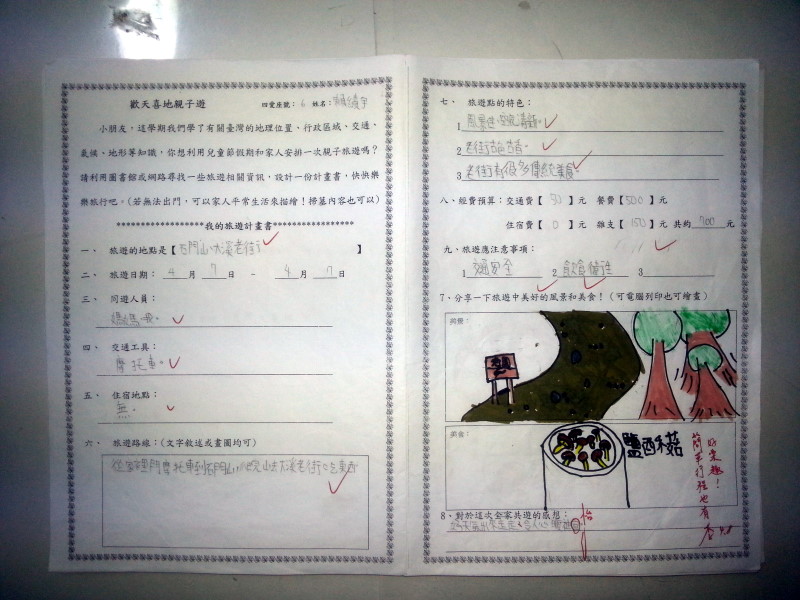 歡天喜地親子遊
四愛座號：6 姓名：
小朋友，這學期我們學了有關臺灣的地理位置、行政區域、交通、
氣候、地形等知識，你想利用兒童節假期和家人安排一次親子旅遊嗎？
請利用圖書館或網路尋找一些旅遊相關資訊，設計一份計畫書，快快樂
樂旅行吧。(若無法出門，可以家人平常生活來描繪！掃墓內容也可以)
********************我的旅遊計畫書********************
一、 旅遊的地點是【石門山、大溪老街】
二、 旅遊日期：4 月 7 日 - 4 月 7 日
三、 同遊人員：
媽媽、我。
四、 交通工具：
摩托車。
五、 住宿地點：
無。
六、 旅遊路線：(文字敘述或畫圖均可)
七、 旅遊點的特色：
1
2 老街古色古香。
3 老街有很多傳統美食
八、經費預算：交通費【 50 】元 餐費【500】元
住宿費【 0 】元 雜支【 150 】元 共約 700 元
九、旅遊應注意事項：
1 交通安全 2 飲食衛生 3
7、分享一下旅遊中美好的風景和美食！(可電腦列印也可繪畫)
風景：
美食：
鹽酥菇
好景趣！
簡單行程也有
8、對於這次全家共遊的感想：
怡